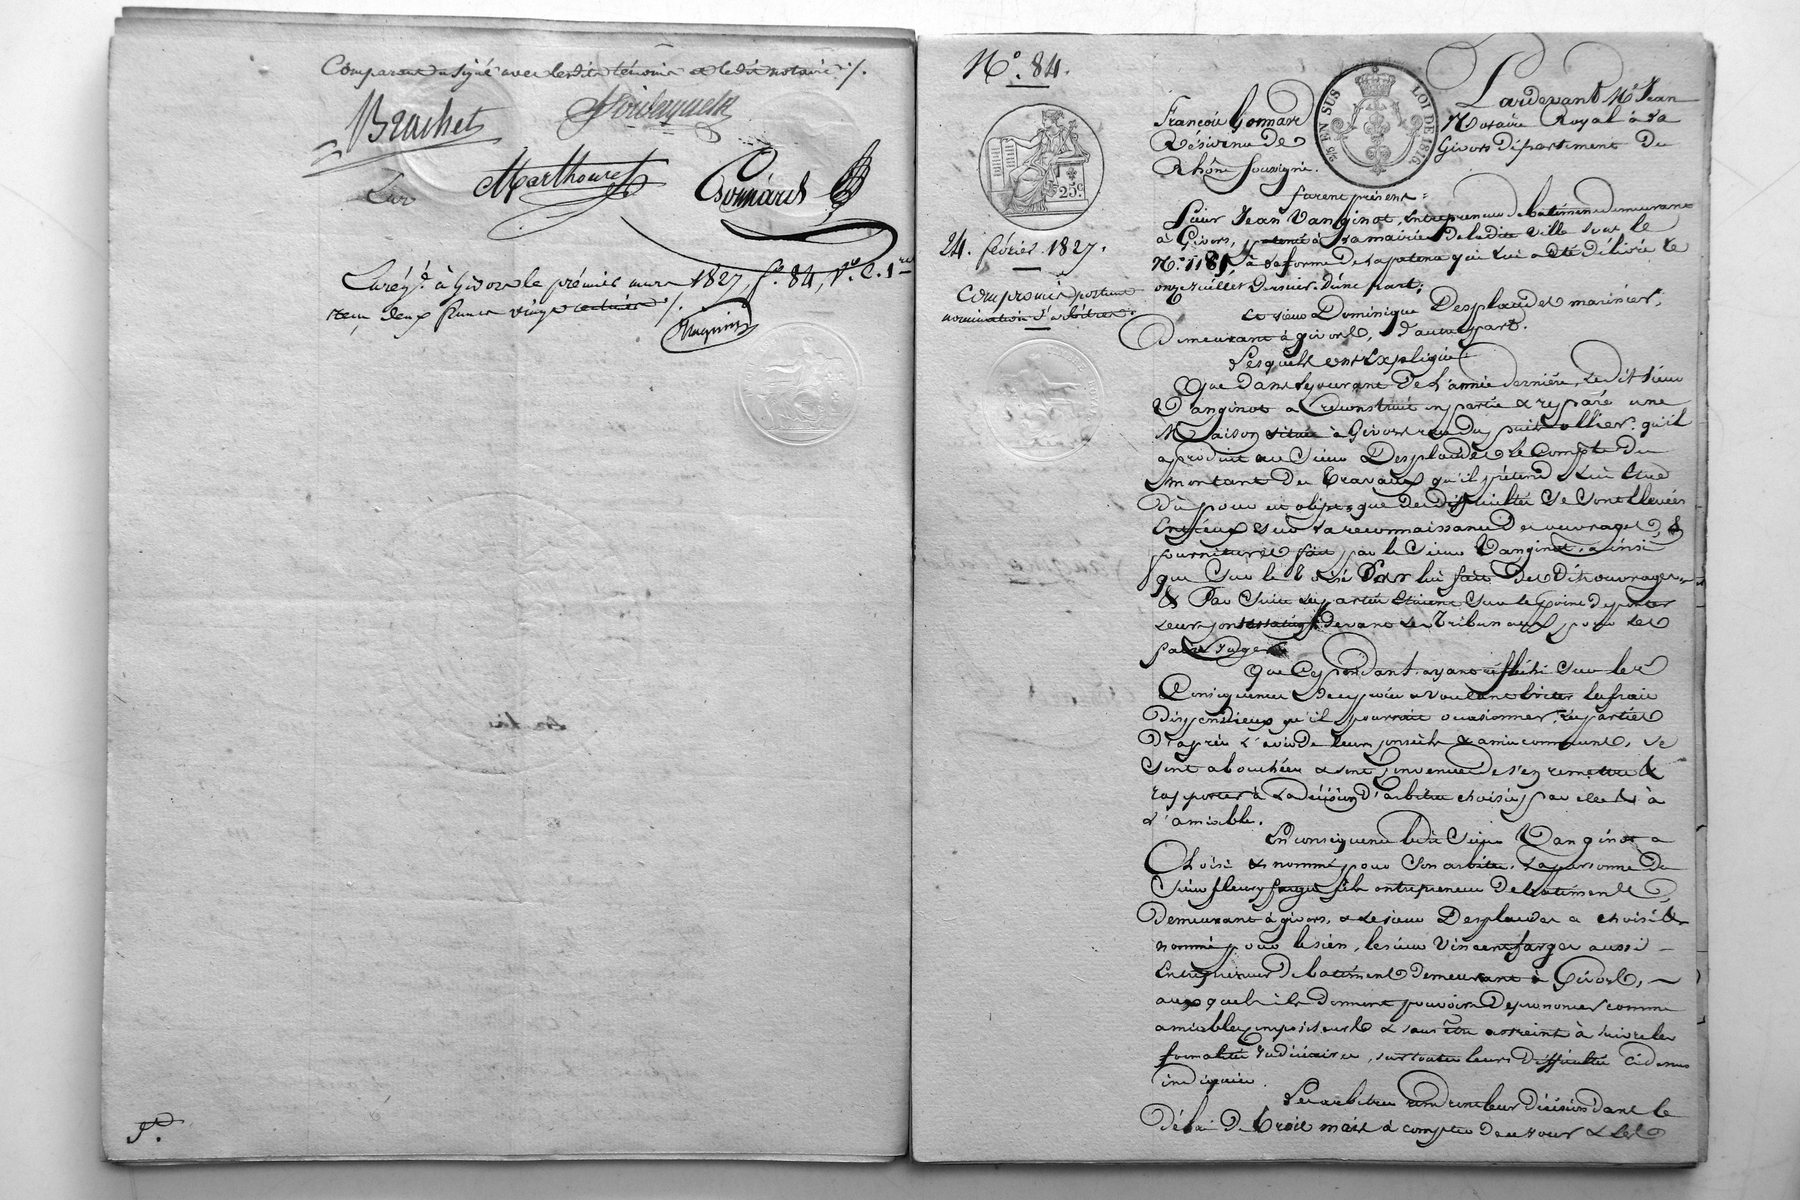 Comparant a signé avec lesdits témoins et ledit notaire ./.
Brachet
Sur
Marthouret
Gonnard
Enregé. à Givors le premier mars 1827, f.o 84, V.o C. 1re
reçu deux francs vingt centimes ./.
f.o
N.o 84.
25.c
24. février 1827.
Compromis portant
nomination d'arbitres.
25 EN SUS LOI DE 1816
Pardevant M.e Jean
François Gonnard Notaire Royal à la
Résidence de Givors département du
Rhône soussigné.
furent présent =
Sieur Jean Vanginot, Entrepreneur de batimens demeurant
à Givors, patenté à la mairie de ladite ville sous le
N.o 118, à la forme de la patente qui lui a été délivrée le
onze juillet dernier. d'une part;
Et sieur Dominique Desplaudes marinier,
Demeurant à givors, d'autre part.
Lesquels ont Expliqué
Que dans le courant de l'année dernière, ledit sieur
Vanginot a reconstruit en partie & réparé une
Maison située à Givors rue du puits ollier. qu'il
a produit au Sieur Desplaudes le Compte du
montant des travaux qu'il prétend lui être
dû pour cet objet, que des difficultés se sont élevées
Entreux sur la reconnaissance des ouvrages, &
fournitures fait par le Sieur Vanginot, ainsi
que sur le Prix par lui fait desdits ouvrages,
& Par suite les parties étaient sur le point de porter
leurs contestations devant les tribunaux pour les
faire juger
Que Cependant, ayant réfléchi sur les
Conséquences du procès & voulant éviter les frais
Dispendieux qu'il pourrait occasionner, les parties
D'après l'avis de leurs conseils & amis communs, se
sont abouchées & sont convenues de s'en remettre &
rapporter à la décision d'arbitres choisis par elles à
l'amiable.
En conséquence ledit Sieur Vanginot a
Choisi & nommé pour son arbitre, la personne du
Sieur fleury farges fils entrepreneur de batiments,
Demeurant à givors, & le sieur Desplaudes a choisi &
nommé pour le sien, le sieur Vincent farges aussi
Entrepreneur de batiment demeurant à Givors,
auxquels ils donnent pouvoirs de prononcer comme
amiables compositeurs & sans être astreint à suivre les
formalités judiciaires, sur toutes leurs difficultés ci dessus
indiquées.
Les arbitres rendront leur décision dans le
Délai de trois mois à compter de ce jour & les